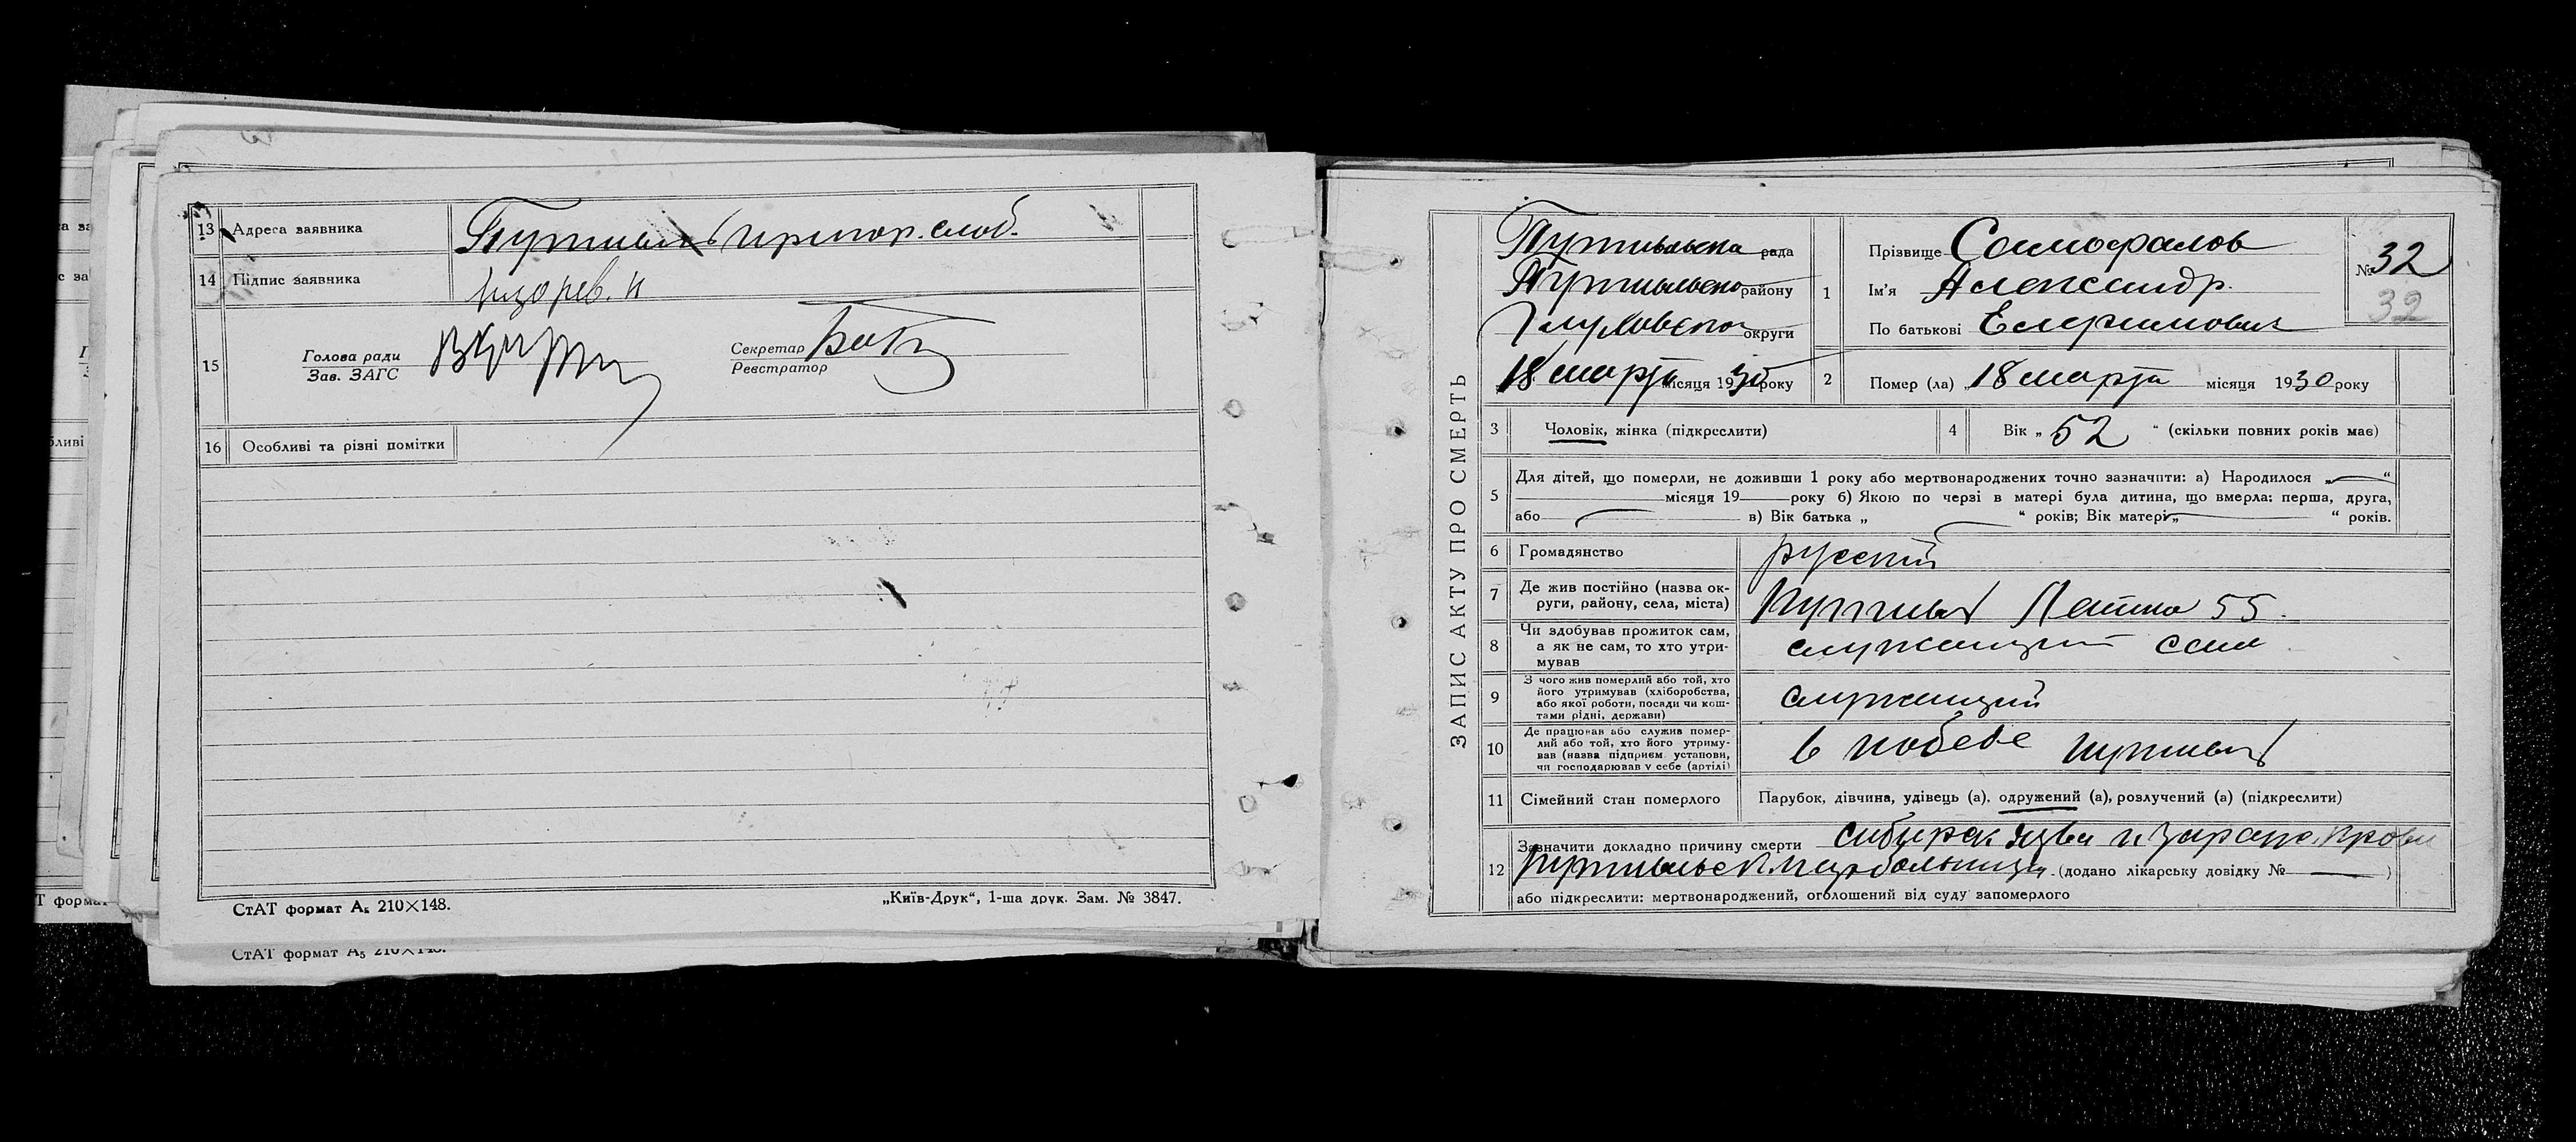 13 Адреса заявника Путивль пригор. слоб.
14 Підпис заявника
15 Голова ради
Зав. ЗАГС
Секретар
Реєстратор
16 Особливі та різні помітки
СтАТ формат А₅ 210×148.
„Київ-Друк“, 1-ша друк. Зам. № 3847.
СтАТ формат А₅ 210×148.
ЗАПИС АКТУ ПРО СМЕРТЬ
Путивльска рада
Путивльско району
Глуховско округи
18 марта місяця 1930 року
1 Прізвище Самофалов
Ім'я Александр.
По батькові Ефимович
№ 32
32
2 Помер (ла) „18 марта місяця 1930 року
3 Чоловік, жінка (підкреслити)
4 Вік „ 52 “ (скільки повних років має)
5 Для дітей, що померли, не доживши 1 року або мертвонароджених точно зазначити: а) Народилося „ “
місяця 19 року б) Якою по черзі в матері була дитина, що вмерла: перша, друга,
або в) Вік батька „ “ років; Вік матері „ “ років.
6 Громадянство русский
7 Де жив постійно (назва ок-
руги, району, села, міста) Путивль 55.
8 Чи здобував прожиток сам,
а як не сам, то хто утри-
мував служащий сам
9 З чого жив померлий або той, хто
його утримував (хліборобства,
або якої роботи, посади чи кош-
тами рідні, держави) служащий
10 Де працював або служив помер-
лий або той, хто його утриму-
вав (назва підприєм установи,
чи господарював у себе (артілі) в победе путивль
11 Сімейний стан померлого Парубок, дівчина, удівець (а), одружений (а), розлучений (а) (підкреслити)
12 Зазначити докладно причину смерти сибирск язва и зараже. крови
Путивльск больница. (додано лікарську довідку № — )
або підкреслити: мертвонароджений, оголошений від суду запомерлого